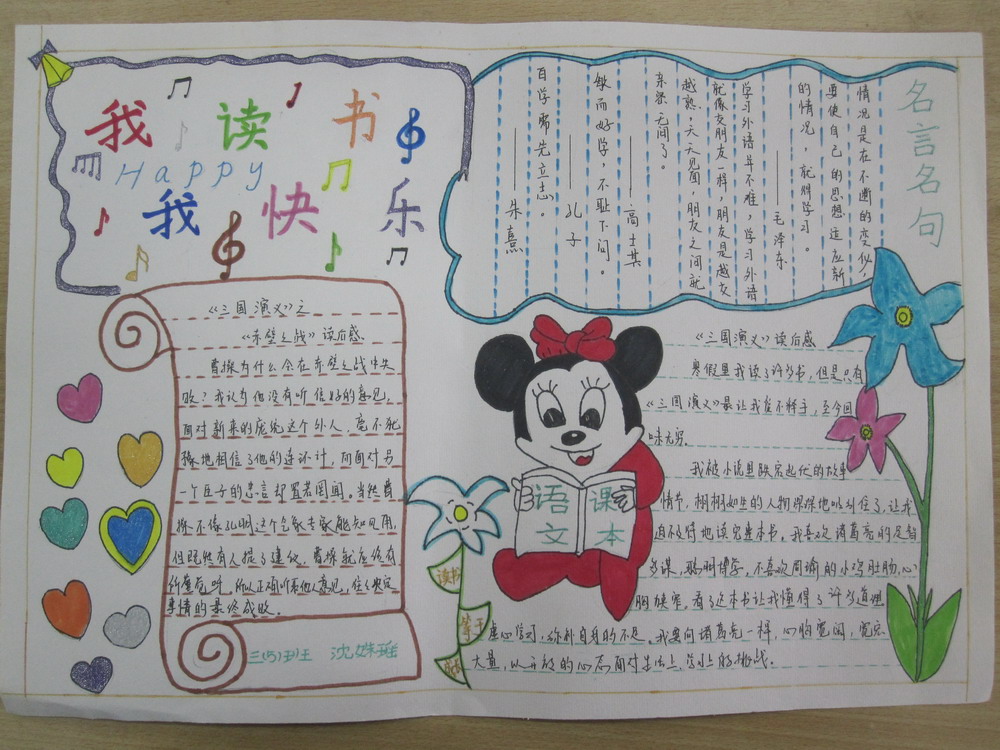 我 读 书
Happy
我 快 乐
名言名句
情况是在不断的变化，
要使自己的思想适应新
的情况，就得学习。
——毛泽东
学习外语并不难，学习外语
就像交朋友一样，朋友是越交
越熟，天天见面，朋友之间就
亲密无间了。
——高士其
敏而好学，不耻下问。
——孔子
学 先立志。
——朱熹
《三国演义》之
《赤壁之战》读后感
曹操为什么会在赤壁之战中失
败？我认为他没有听信好的意见，
面对新来的庞统这个外人，毫不犹
豫地相信了他的连环计，而面对另
一个臣子的忠言却置若罔闻。当然曹
操不像孔明这个气象专家能知风雨，
但既然有人提了建议，曹操就应该有
所重视呀。所以正确听取他人意见，往往决定
事情的最终成败。
三(5)班 沈姝
语文
课本
读书
等于
《三国演义》读后感
寒假里我读了许多书，但是只有
《三国演义》最让我爱不释手，至今回
味无穷。
我被小说里跌宕起伏的故事
情节，栩栩如生的人物深深地吸引住了，让我
迫不及待地读完整本书，我喜欢诸葛亮的足智
多谋，聪明博学，不喜欢周瑜的小鸡肚肠，心
胸狭窄，看了这本书让我懂得了许多道理
虚心学习，弥补自我的不足，我要向诸葛亮一样，心胸宽阔，宽宏
大量，以开放的心态面对生活上，学习上的挑战。